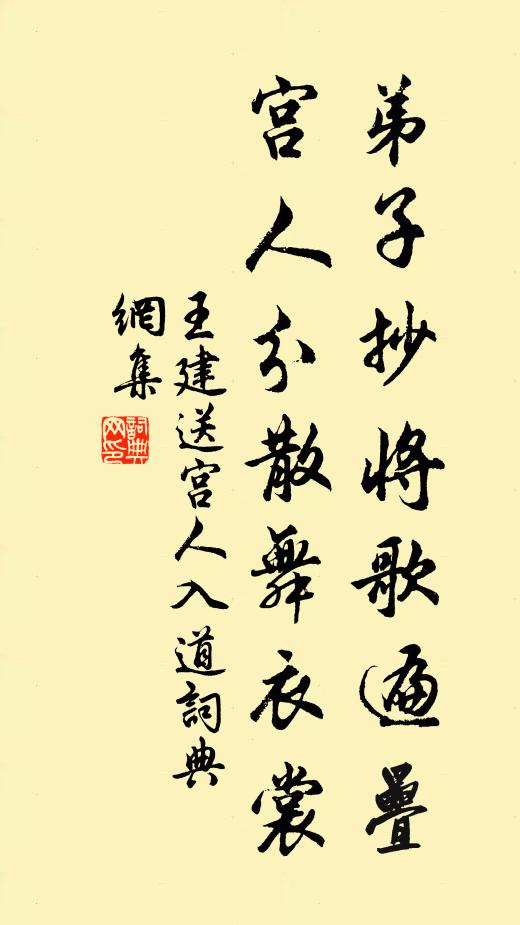 弟子抄將歌遍疊
宫人分散舞衣裳
王建送宫人入道詞典
網集
詞典
网印